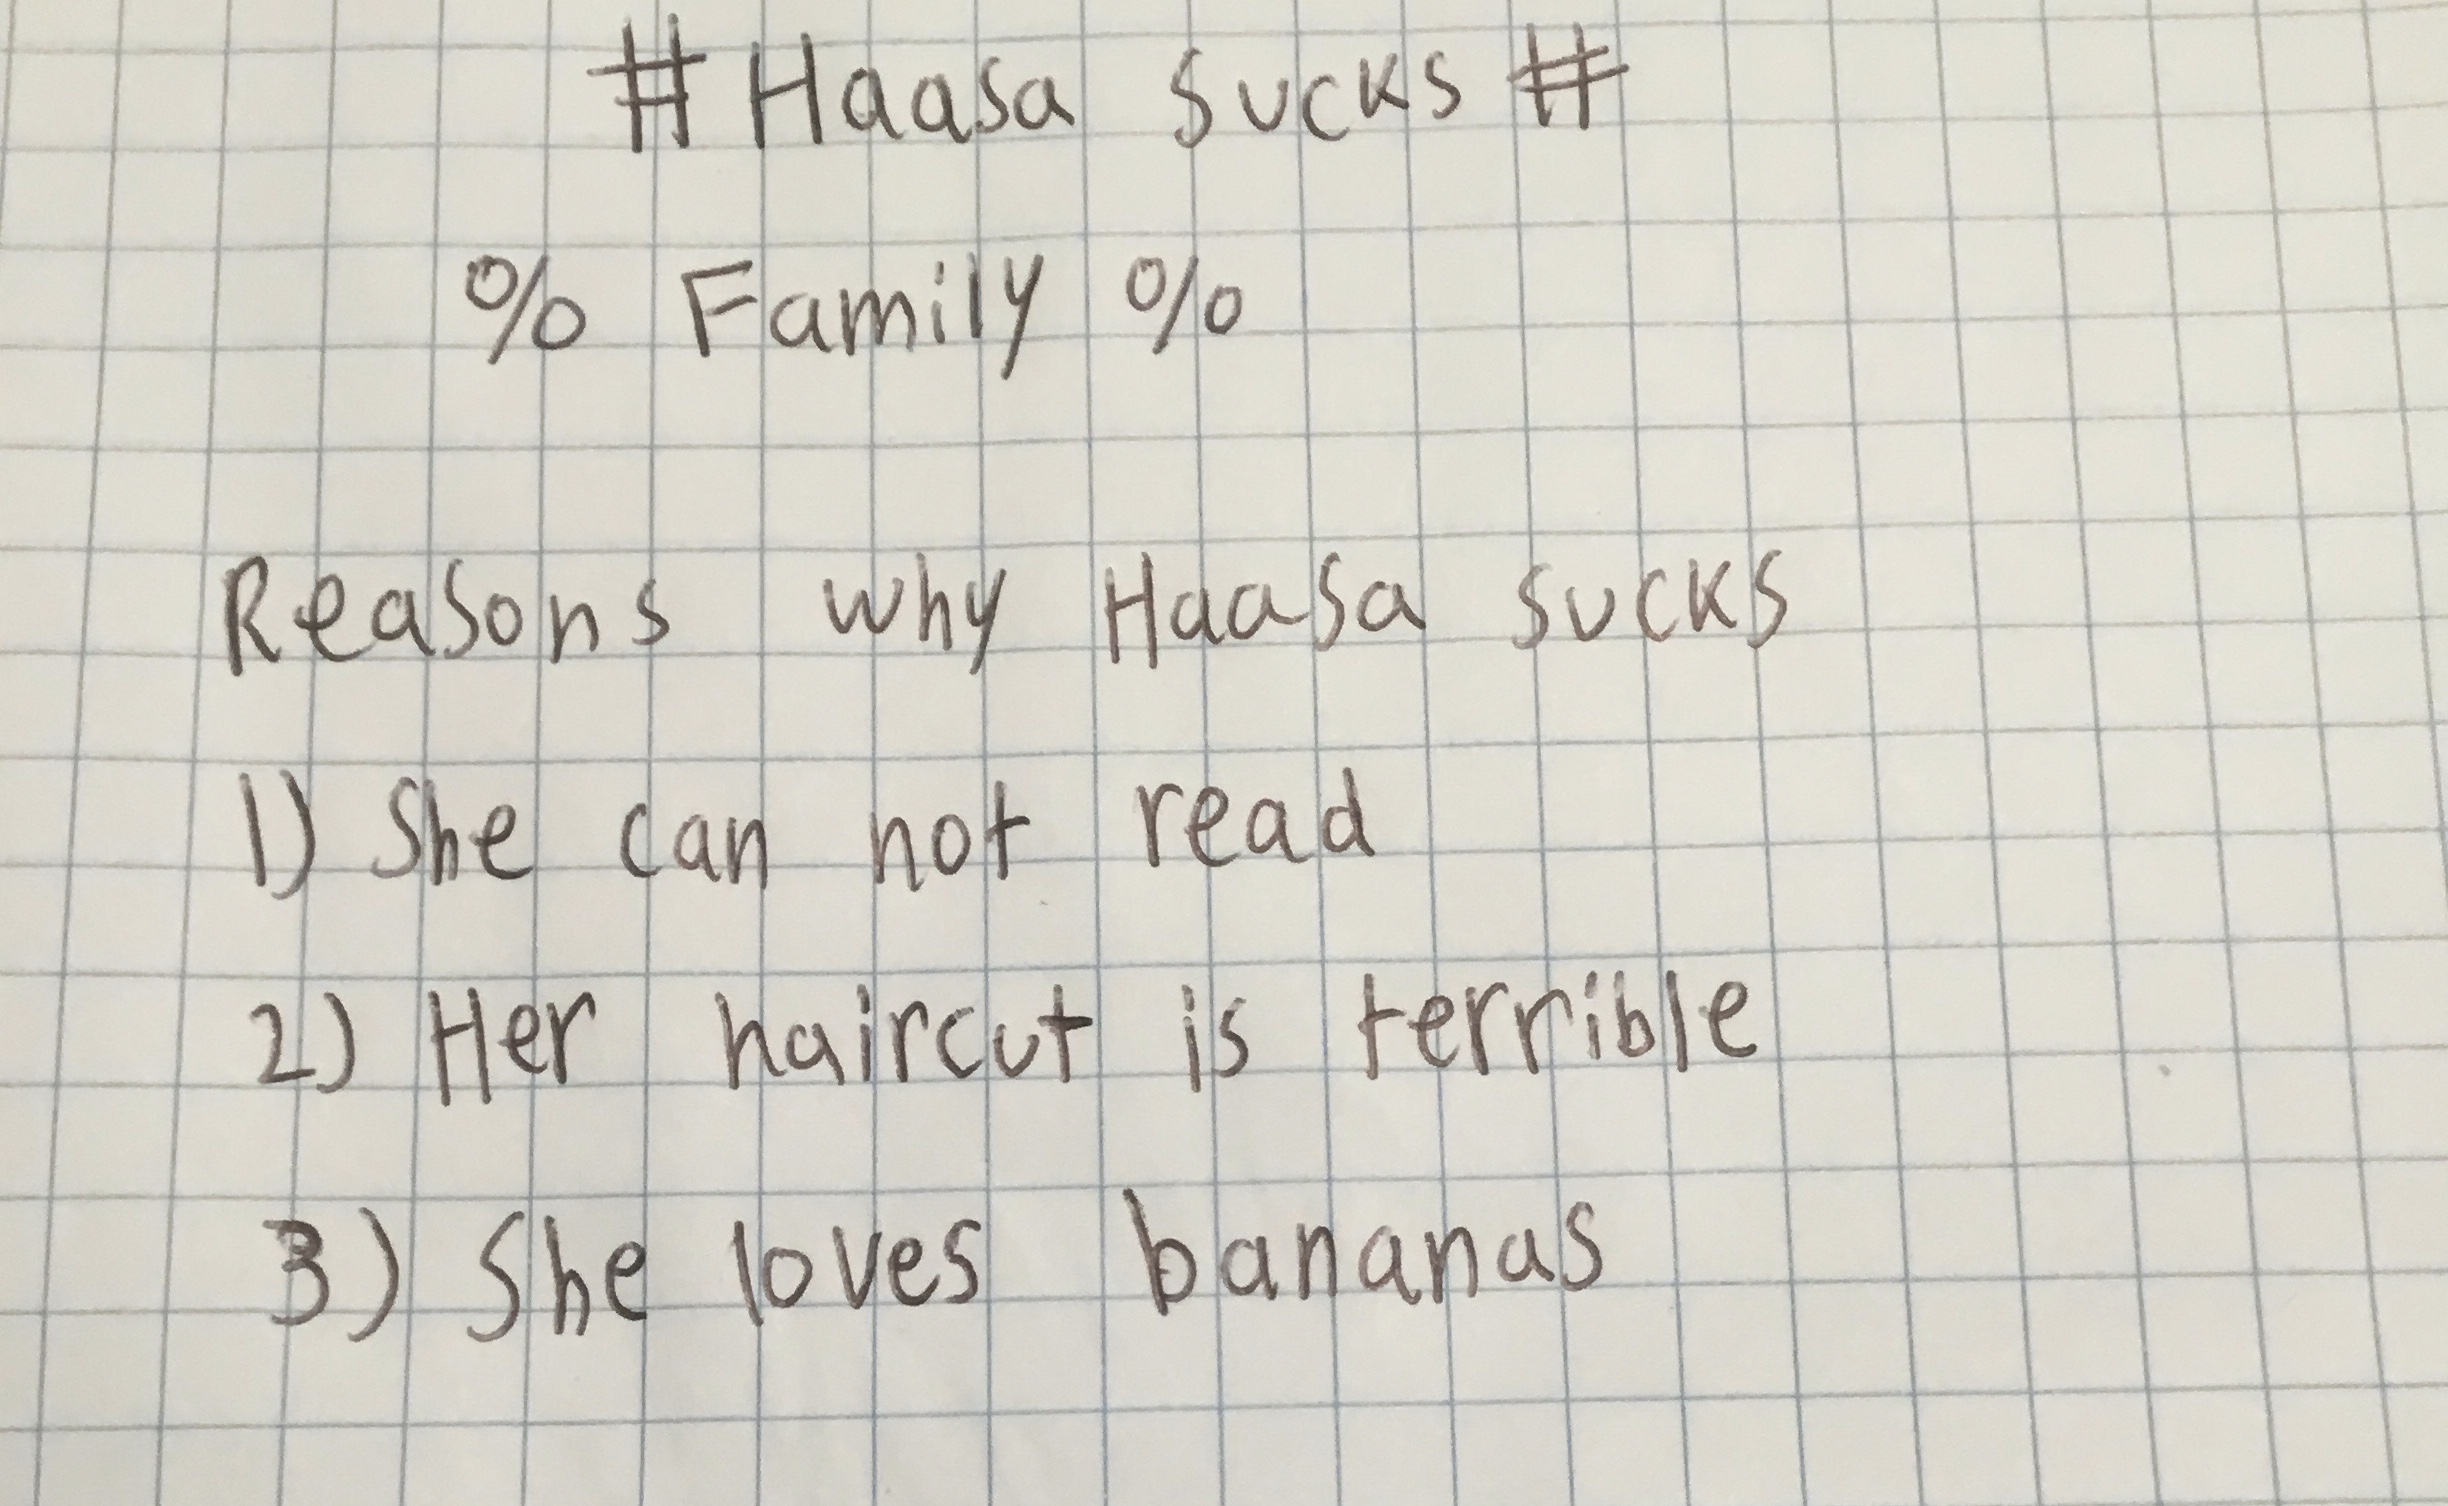 # Haasa sucks #
% Family %
Reasons why Haasa sucks
1) She can not read
2) Her haircut is terrible
3) She loves bananas